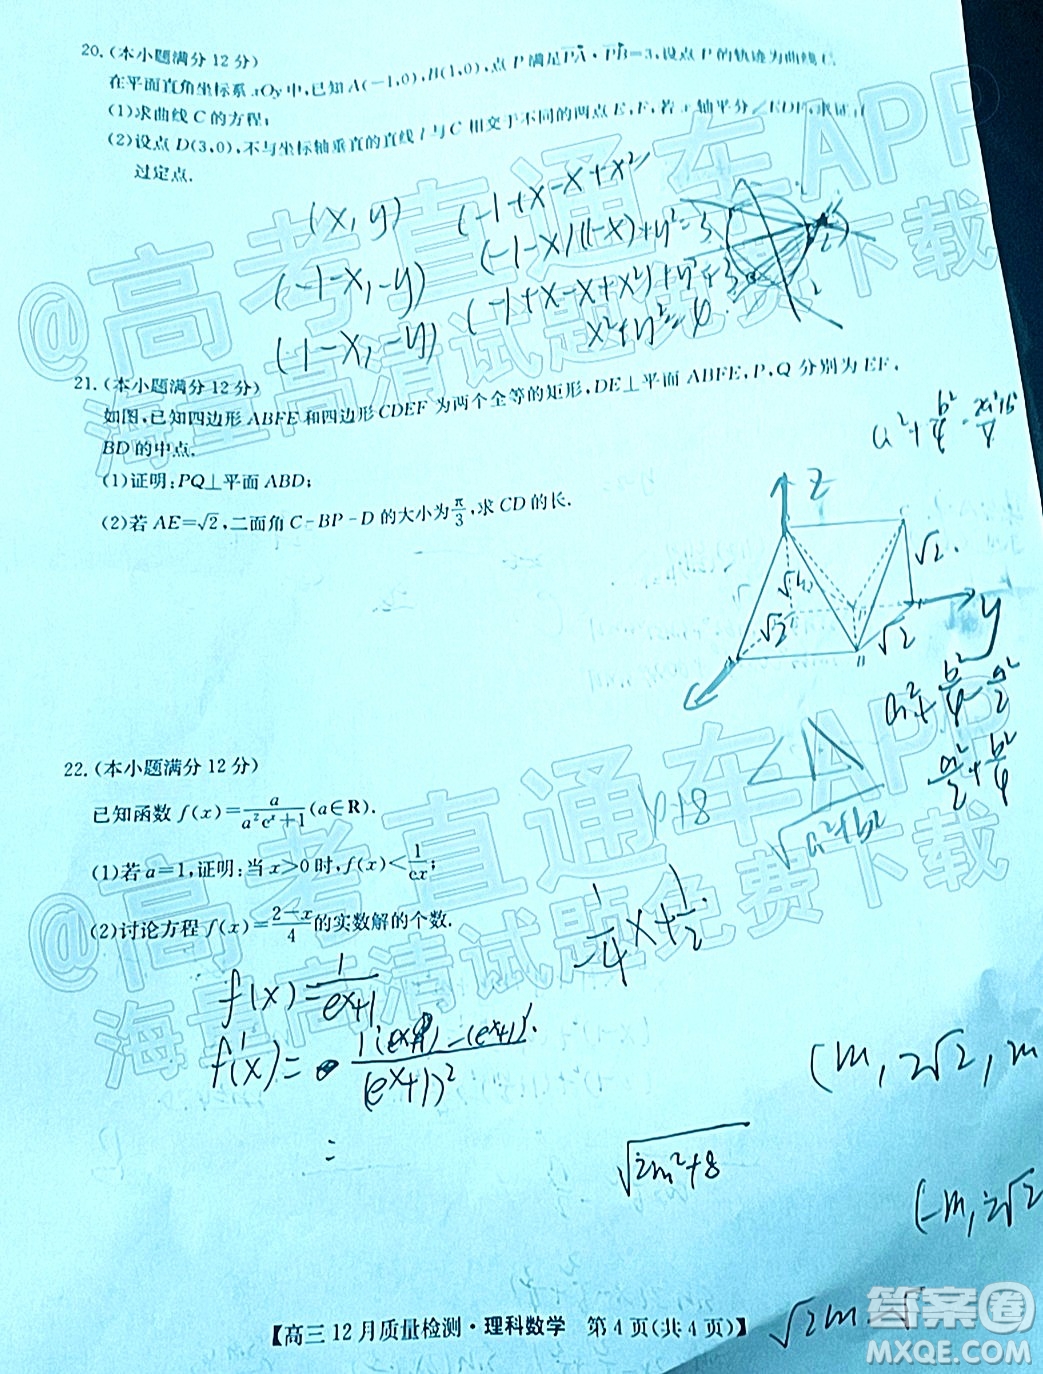 20.(本小题满分12分)
在平面直角坐标系xOy中,已知A(-1,0),B(1,0),点P满足PA·PB=3,设点P的轨迹为曲线C.
(1)求曲线C的方程;
(2)设点D(3,0),不与坐标轴垂直的直线l与C相交于不同的两点E,F,若x轴平分∠EDF,求证:l
过定点.
(x,y) (-1+x-x+x²
(-1-x)(1-x)+y²=3
(-1-x,-y) (-1+x-x+x²)+y²=3
(-1-x,-y) x²+y²=4.
21.(本小题满分12分)
如图,已知四边形ABFE和四边形CDEF为两个全等的矩形,DE⊥平面ABFE,P,Q分别为EF,
BD的中点.
(1)证明:PQ⊥平面ABD;
(2)若AE=√2,二面角C-BP-D的大小为π/3,求CD的长.
z
√2.
y
√2
√2
22.(本小题满分12分)
已知函数f(x)=a/(a²eˣ+1)(a∈R).
(1)若a=1,证明:当x>0时,f(x)<1/(ex);
(2)讨论方程f(x)=(2-x)/4的实数解的个数.
-1/4x+1/2.
√(a²+b²)
f(x)=1/(eˣ+1)
f'(x)=
=
(m,2√2,m
√(2m²+8)
【高三12月质量检测·理科数学 第4页(共4页)】
@高考直通车APP
海量高清试题免费下载
@高考直通车APP
海量高清试题免费下载
答案卷
MXQE.COM